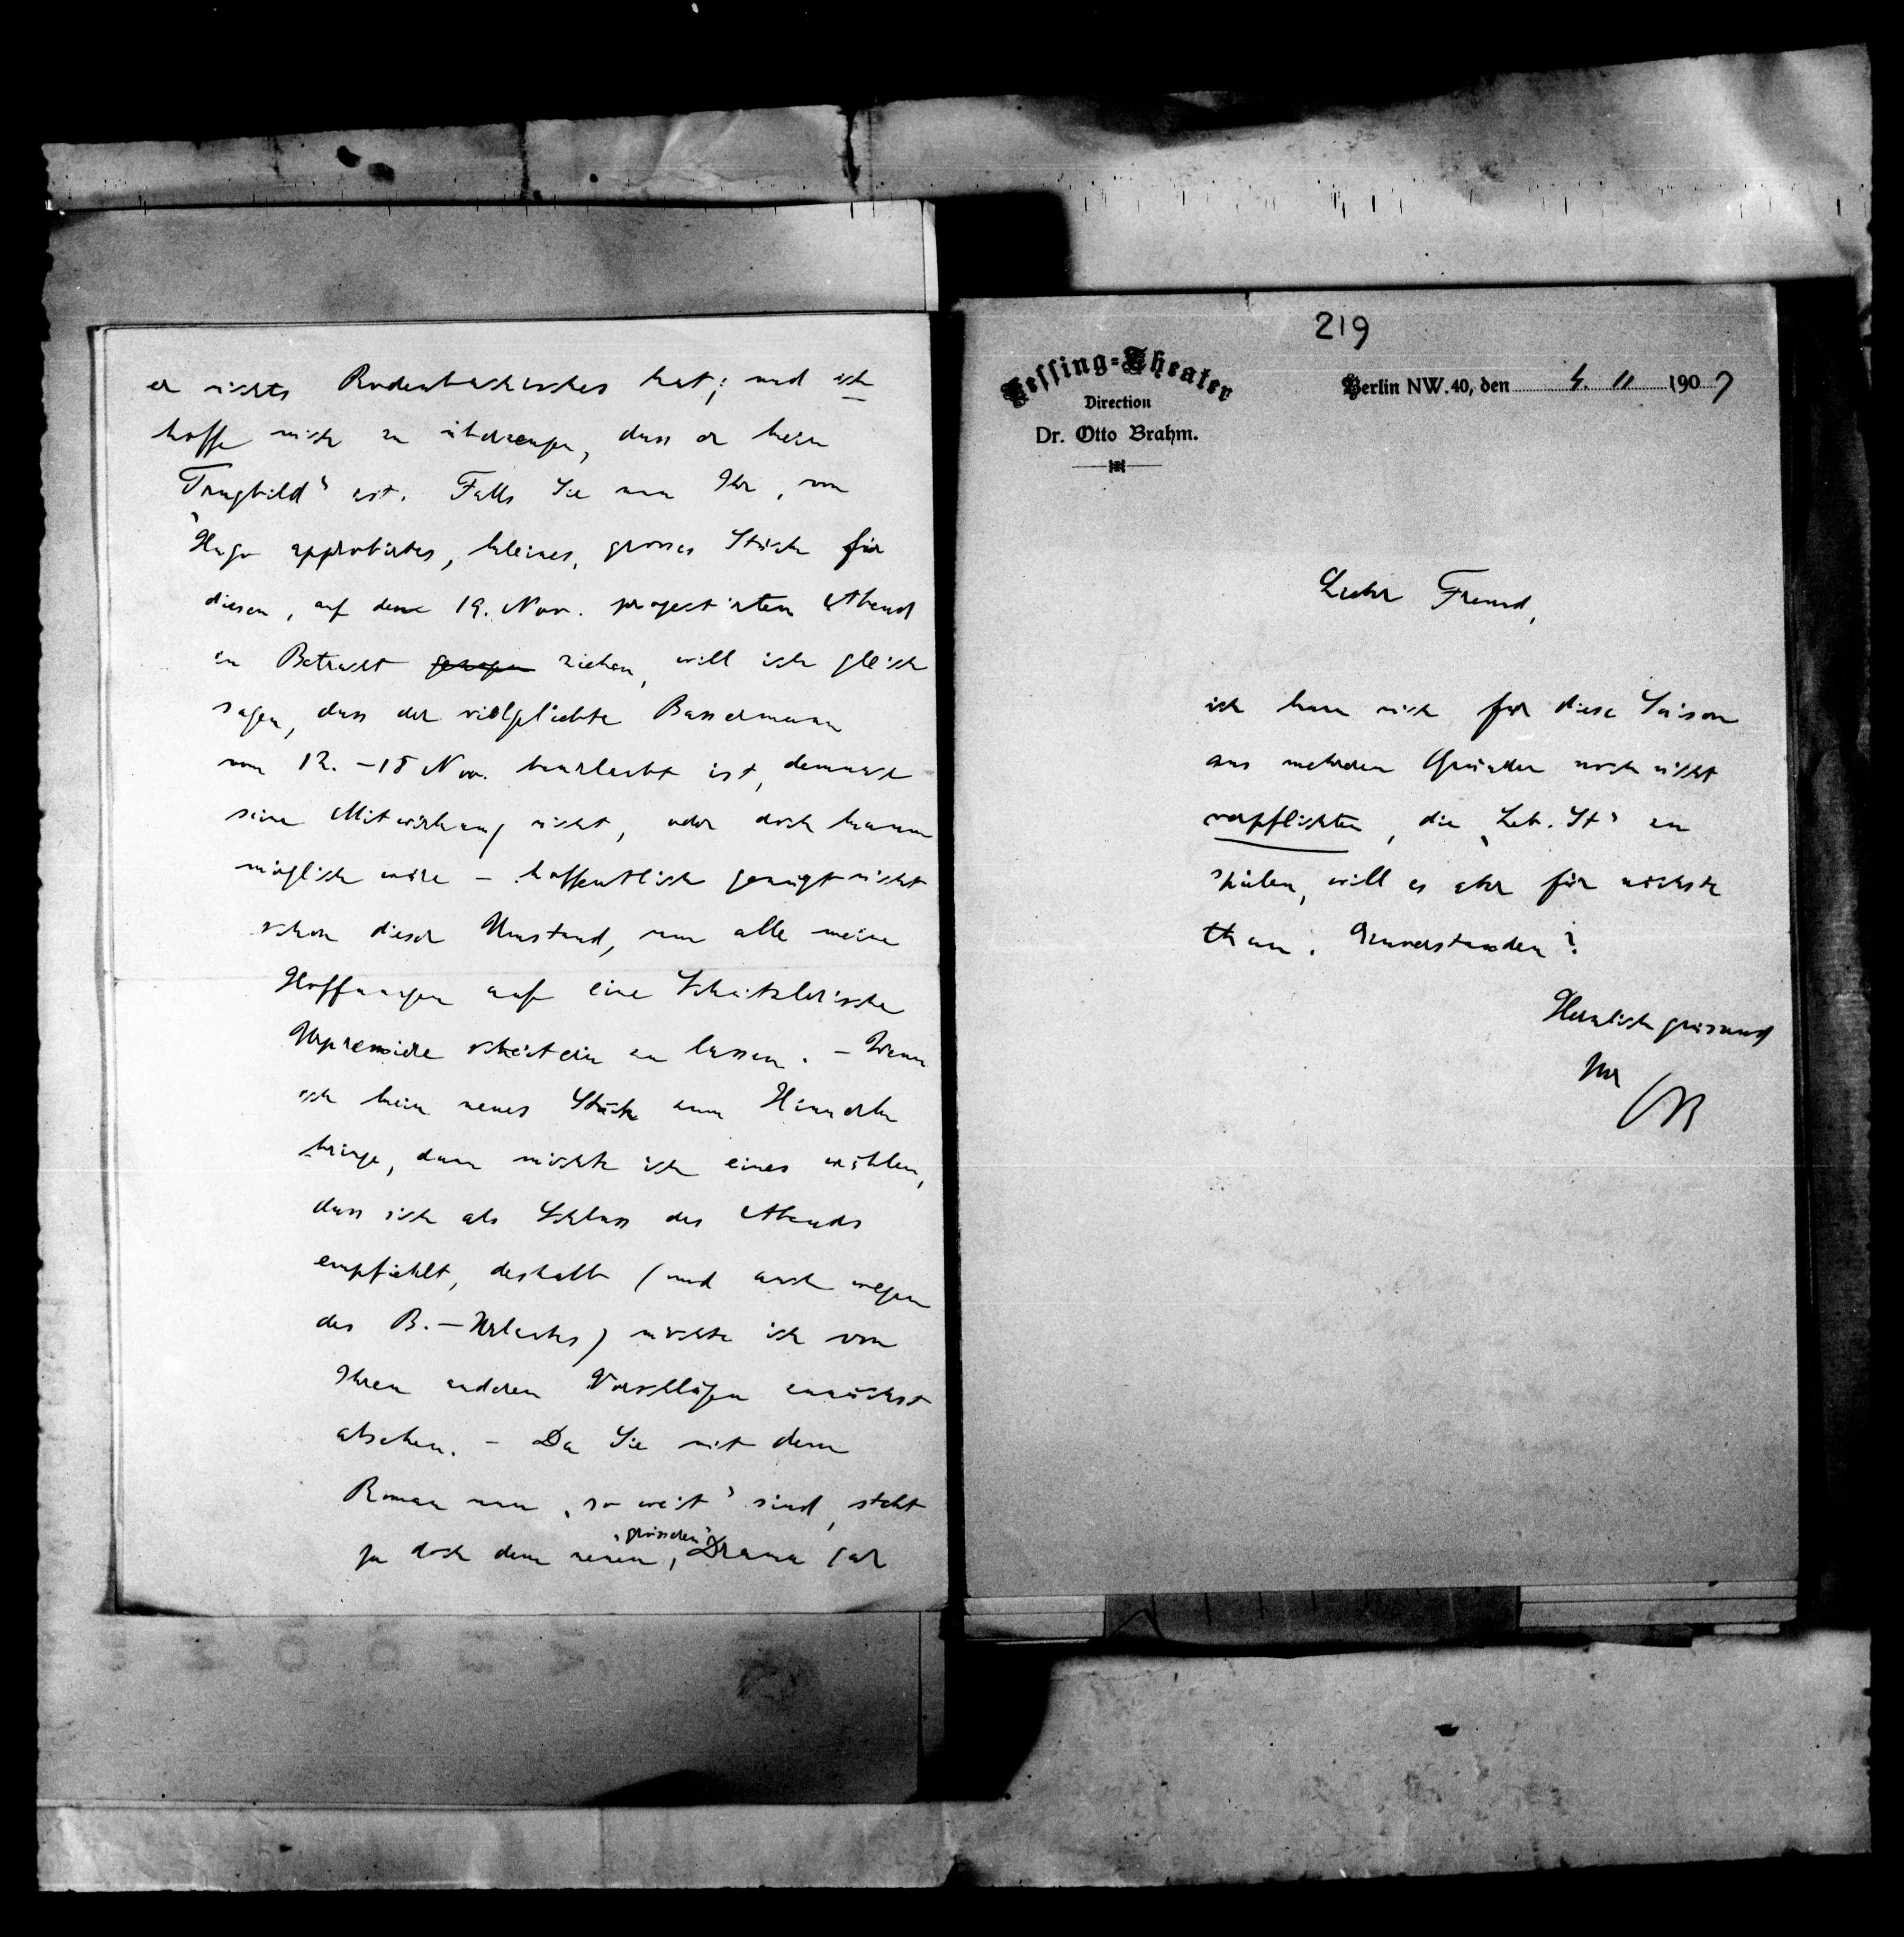 er nichts Rodenbachisches hat; und ich
hoffe mich zu überzeugen, dass er kein
„Trugbild“ ist. Falls Sie nun Ihr, von
Hugo approbirtes, kleines, grosses Stück für
diesen, auf den 19. Nov. projectirten Abend
in Betracht gezogen ziehen, will ich gleich
sagen, dass der vielgeliebte Bassermann
vom 12. – 18 Nov. beurlaubt ist, demnach
seine Mitwirkung nicht, oder doch kaum
möglich wäre – hoffentlich genügt nicht
schon dieser Umstand, um alle meine
Hoffnungen auf eine Schnitzlerische
Urpremière scheitern zu lassen. – Wenn
ich kein neues Stück zum Hinnerk
bringe, dann möchte ich eines wählen,
dass sich als Schluss des Abends
empfiehlt, deshalb (und auch wegen
des B. – Urlaubs) möchte ich von
Ihren anderen Vorschlägen zunächst
absehen. – Da Sie mit dem
Roman nun „so weit“ sind, steht
ja doch dem neuen, „grösseren“ Drama (ab
219
Lessing-Theater
Direction
Dr. Otto Brahm.
Berlin NW. 40, den 4. 11 1907
Lieber Freund,
ich kann mich für diese Saison
aus mehreren Gründen noch nicht
verpflichten, die „Leb. St“ zu
spielen, will es aber für nächste
thun. Einverstanden?
Herzlich grüssend
Ihr
OB